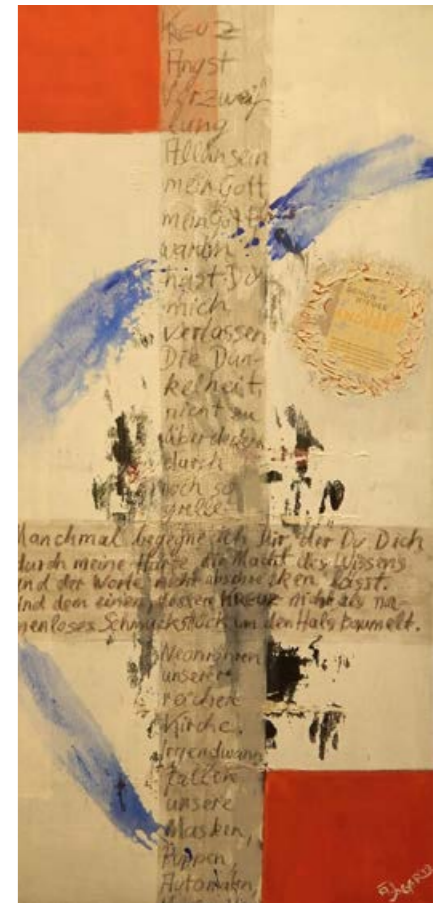 KREUZ
Angst
Verzweif
lung
Alleinsein
mein Gott
mein Gott
warum
hast Du
mich
verlassen
Die Dun-
kelheit
nicht zu
überdecken
durch
noch so
grelle
Manchmal begegne ich Dir, der Du Dich
durch meine Härte, die Macht des Wissens
und der Worte nicht abschrecken lässt.
Und dem einen, dessen KREUZ nicht als na-
menloses Schmuckstück um den Hals baumelt.
Neonröhren
unserer
Kirche.
Irgendwann
fallen
unsere
Masken,
Puppen,
Automaten,